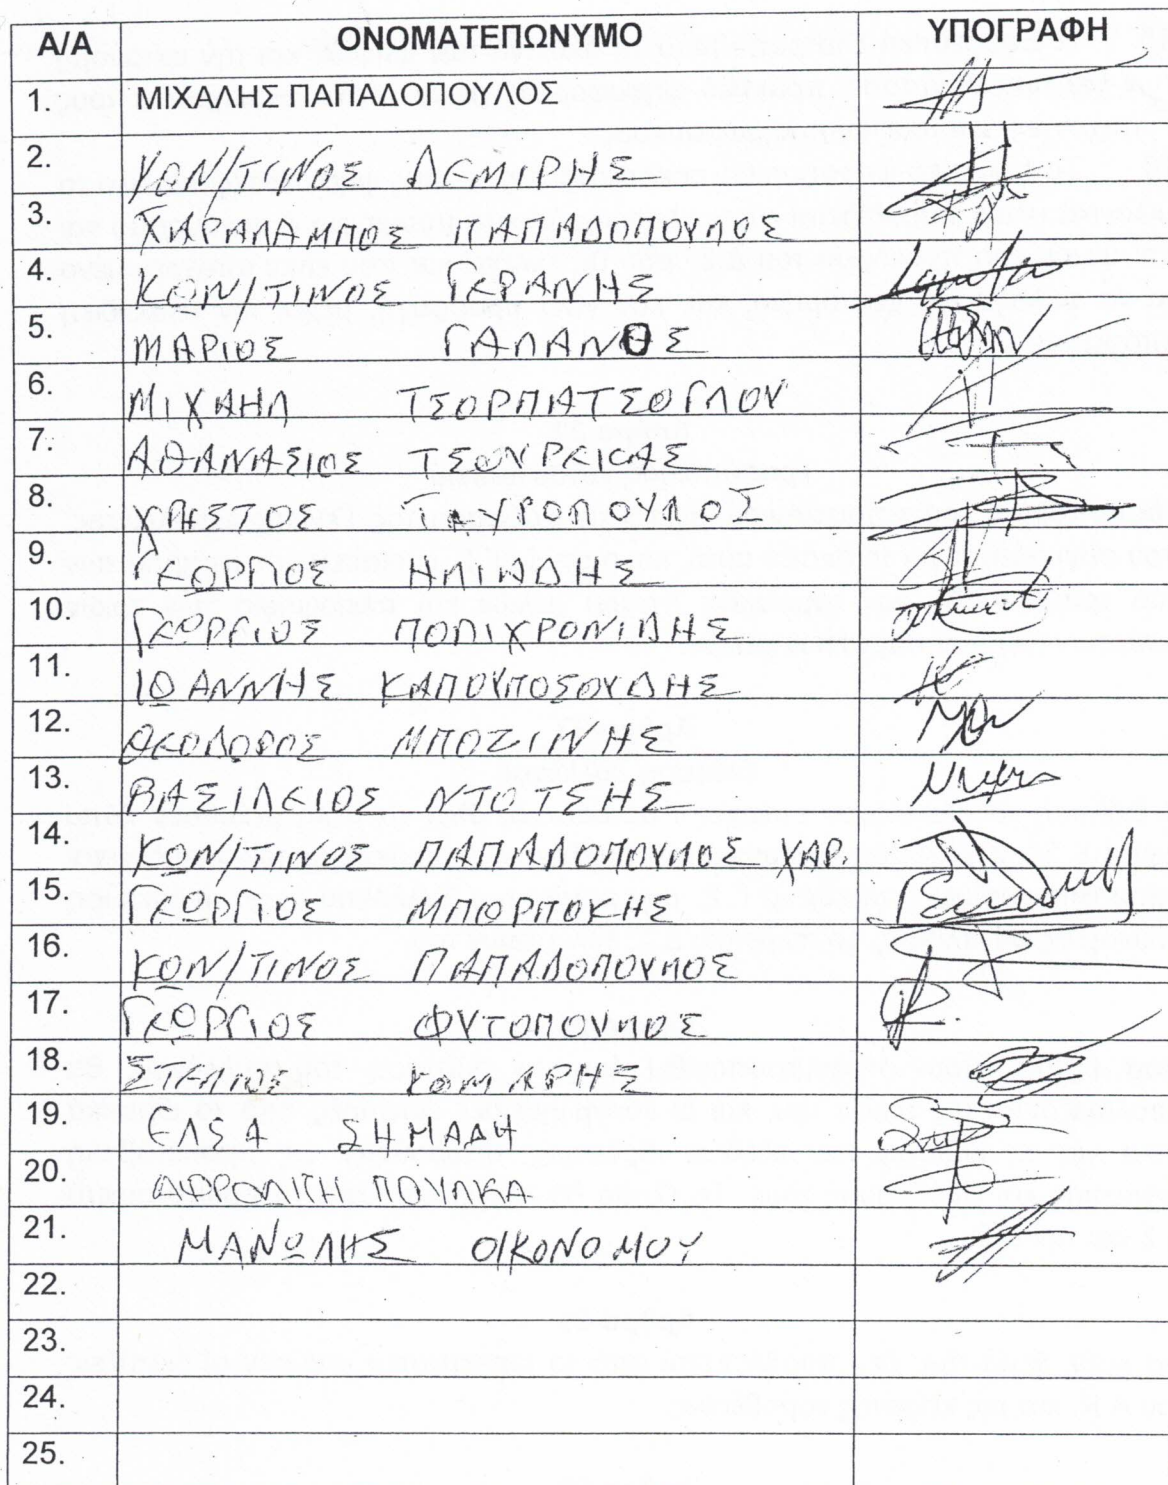 Α/Α ΟΝΟΜΑΤΕΠΩΝΥΜΟ ΥΠΟΓΡΑΦΗ
1. ΜΙΧΑΛΗΣ ΠΑΠΑΔΟΠΟΥΛΟΣ
2. ΚΩΝ/ΤΙΝΟΣ ΔΕΜΙΡΗΣ
3. ΧΑΡΑΛΑΜΠΟΣ ΠΑΠΑΔΟΠΟΥΛΟΣ
4. ΚΩΝ/ΤΙΝΟΣ ΓΕΡΑΝΗΣ
5. ΜΑΡΙΟΣ ΓΑΛΑΝΟΣ
6. ΜΙΧΑΗΛ ΤΣΟΡΠΑΤΣΟΓΛΟΥ
7. ΑΘΑΝΑΣΙΟΣ
8. ΧΡΗΣΤΟΣ
9. ΓΕΩΡΓΙΟΣ ΗΛΙΑΔΗΣ
10. ΓΕΩΡΓΙΟΣ ΠΟΛΙΧΡΟΝΙΔΗΣ
11. ΙΩΑΝΝΗΣ
12. ΘΕΟΔΟΡΟΣ ΜΠΟΖΙΝΗΣ
13. ΒΑΣΙΛΕΙΟΣ ΝΤΟΤΣΗΣ
14. ΚΩΝ/ΤΙΝΟΣ ΠΑΠΑΔΟΠΟΥΛΟΣ ΧΑΡ.
15. ΓΕΩΡΓΙΟΣ ΜΠΟΡΠΟΚΗΣ
16. ΚΩΝ/ΤΙΝΟΣ ΠΑΠΑΔΟΠΟΥΛΟΣ
17. ΓΕΩΡΓΙΟΣ ΦΥΤΟΠΟΥΛΟΣ
18. ΣΤΕΛΙΟΣ ΚΟΜΑΡΗΣ
19. ΕΛΣΑ ΣΗΜΑΔΗ
20. ΑΦΡΟΔΙΤΗ ΠΟΥΛΚΑ
21. ΜΑΝΩΛΗΣ ΟΙΚΟΝΟΜΟΥ
22.
23.
24.
25.